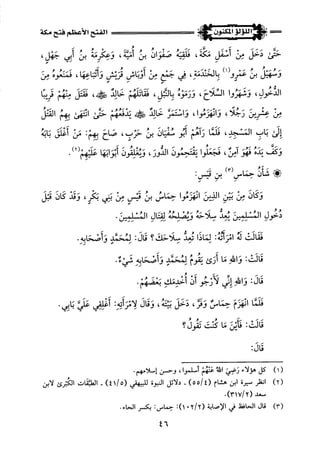 اللؤلؤ المكنون
الفتح الأعظم فتح مكة
حَتَّى دَخَلَ مِنْ أَسْفَلِ مَكَّةَ، فَلَقِيَهُ صَفْوَانُ بْنُ أُمَيَّةَ، وَعِكْرِمَةُ بْنُ أَبِي جَهْلٍ،
وَسُهَيْلُ بْنُ عَمْرٍو(١) بِالْخَنْدَمَةِ، فِي جَمْعٍ مِنْ أَوْبَاشِ قُرَيْشٍ وَأَتْبَاعِهَا، فَمَنَعُوهُ مِنَ
الدُّخُولِ، وَشَهَرُوا السِّلَاحَ، وَرَمَوْهُ بِالنَّبْلِ، فَقَاتَلَهُمْ خَالِدٌ ﷺ، فَقَتَلَ مِنْهُمْ قَرِيبًا
مِنْ عِشْرِينَ رَجُلًا، وَانْهَزَمُوا، وَاسْتَمَرَّ خَالِدٌ ﷺ يَدْفَعُهُمْ حَتَّى انْتَهَى بِهِمُ الْقَتْلُ
إِلَى بَابِ الْمَسْجِدِ، فَلَمَّا رَآهُمْ أَبُو سُفْيَانَ بْنُ حَرْبٍ، صَاحَ بِهِمْ: مَنْ أَغْلَقَ بَابَهُ
وَكَفَّ يَدَهُ فَهُوَ آمِنٌ، فَجَعَلُوا يَقْتَحِمُونَ الدُّورَ، وَيُغْلِقُونَ أَبْوَابَهَا عَلَيْهِمْ(٢).
شَأْنُ حِمَاسِ(٣) بْنِ قَيْسٍ:
وَكَانَ مِنْ بَيْنِ الَّذِينَ انْهَزَمُوا حِمَاسُ بْنُ قَيْسٍ مِنْ بَنِي بَكْرٍ، وَقَدْ كَانَ قَبْلَ
دُخُولِ الْمُسْلِمِينَ يُعِدُّ سِلَاحَهُ وَيُصْلِحُهُ لِقِتَالِ الْمُسْلِمِينَ.
فَقَالَتْ لَهُ امْرَأَتُهُ: لِمَاذَا تُعِدُّ سِلَاحَكَ؟ قَالَ: لِمُحَمَّدٍ وَأَصْحَابِهِ.
قَالَتْ: وَاللهِ مَا أَرَى يَقُومُ لِمُحَمَّدٍ وَأَصْحَابِهِ شَيْءٌ.
قَالَ: وَاللهِ إِنِّي لَأَرْجُو أَنْ أُخْدِمَكِ بَعْضَهُمْ.
فَلَمَّا انْهَزَمَ حِمَاسٌ وَفَرَّ، دَخَلَ بَيْتَهُ، وَقَالَ لِامْرَأَتِهِ: أَغْلِقِي عَلَيَّ بَابِي.
قَالَتْ: فَأَيْنَ مَا كُنْتَ تَقُولُ؟
قَالَ:
(١) كل هؤلاء رَضِيَ اللهُ عَنْهُمْ أسلموا، وحسن إسلامهم.
(٢) انظر سيرة ابن هشام (٥٥/٤) - دلائل النبوة للبيهقي (٤١/٥) - الطَّبَقَات الكُبْرَى لابن
سعد (٣١٧/٢)
(٣) قال الحافظ في الإصابة (١٠٢/٢): حِمَاس: بكسر الحاء.
٤٦